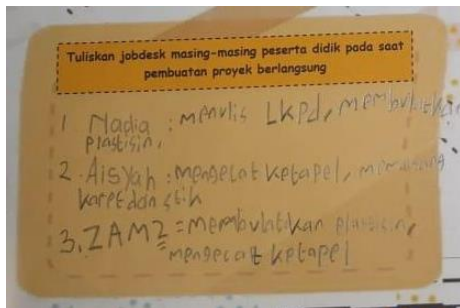 Tuliskan jobdesk masing-masing peserta didik pada saat
pembuatan proyek berlangsung
1 Nadia : menulis LKPd, membulatkan
plastisin,
2. Aisyah : mengecat ketapel, memasang
karet dan stik
3. ZAM2 = membulatkan plastisin,
mengecat ketapel